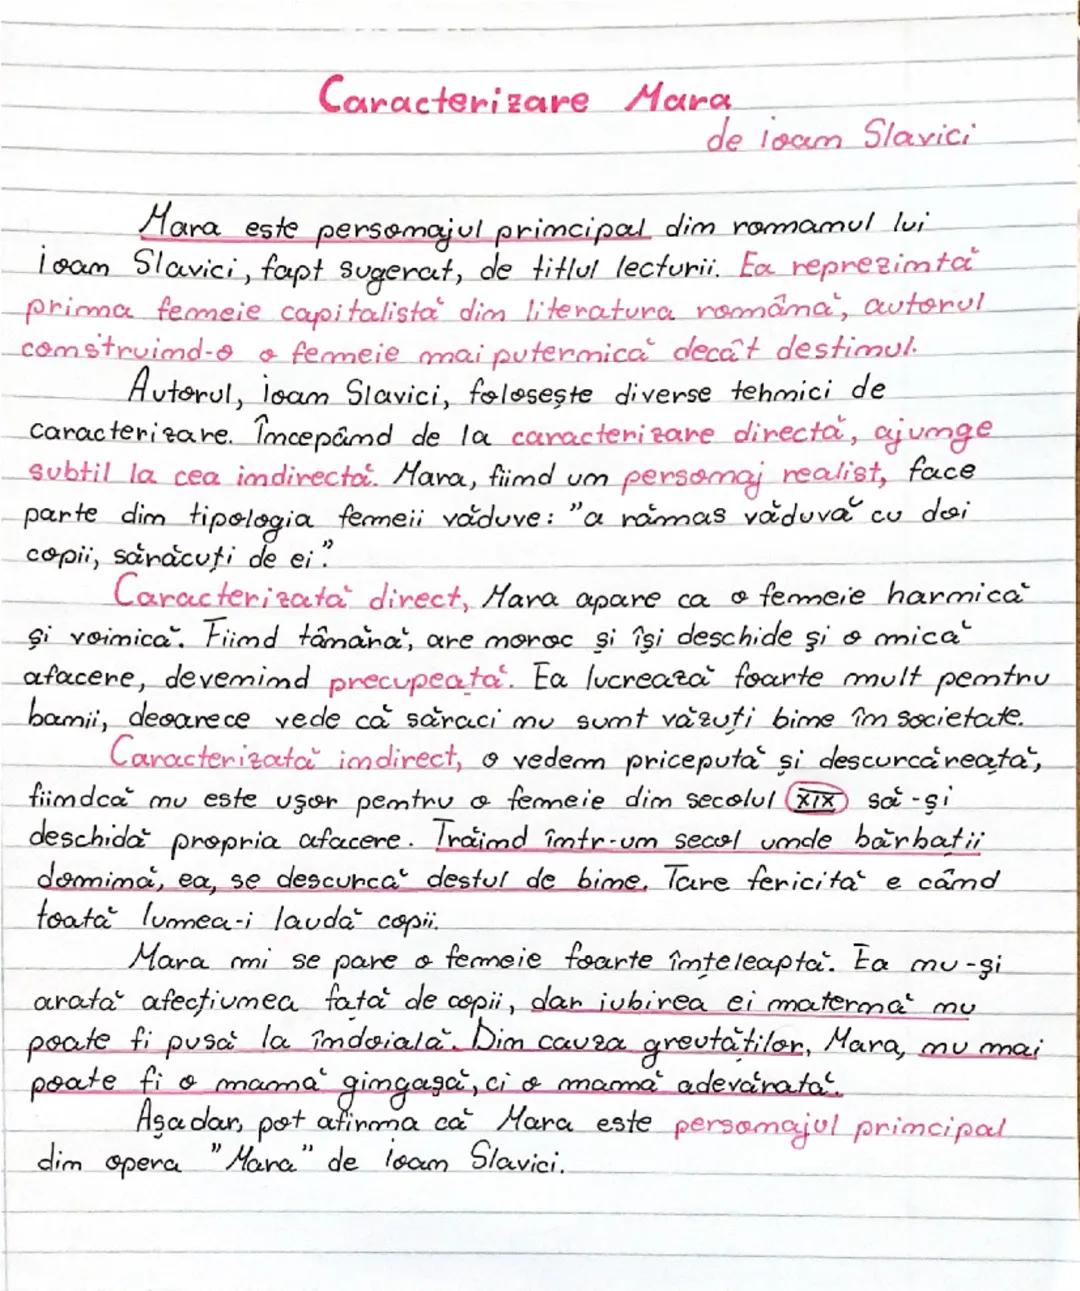 Caracterizare Mara
de Ioan Slavici
Mara este personajul principal din romanul lui
Ioan Slavici, fapt sugerat, de titlul lecturii. Ea reprezintă
prima femeie capitalistă din literatura română, autorul
construind-o o femeie mai puternică decât destinul.
Autorul, Ioan Slavici, folosește diverse tehnici de
caracterizare. Începând de la caracterizare directă, ajunge
subtil la cea indirectă. Mara, fiind un personaj realist, face
parte din tipologia femeii văduve: "a rămas văduvă cu doi
copii, sărăcuți de ei".
Caracterizată direct, Mara apare ca o femeie harnică
și voinică. Fiind tânără, are noroc și își deschide și o mică
afacere, devenind precupeață. Ea lucrează foarte mult pentru
banii, deoarece vede că săraci nu sunt văzuți bine în societate.
Caracterizată indirect, o vedem pricepută și descurcăreață,
fiindcă nu este ușor pentru o femeie din secolul XIX să-și
deschidă propria afacere. Trăind într-un secol unde bărbații
domină, ea, se descurcă destul de bine. Tare fericită e când
toată lumea-i laudă copii.
Mara mi se pare o femeie foarte înțeleaptă. Ea nu-și
arată afecțiunea față de copii, dar iubirea ei maternă nu
poate fi pusă la îndoială. Din cauza greutăților, Mara, nu mai
poate fi o mamă gingașă, ci o mamă adevărată.
Așadar, pot afirma că Mara este personajul principal
din opera "Mara" de Ioan Slavici.